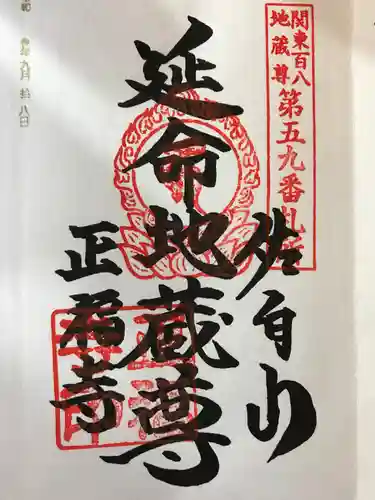 関東百八
地蔵尊
第五九番札所
佐白山
延命地蔵尊
正福寺
九月
拾八日